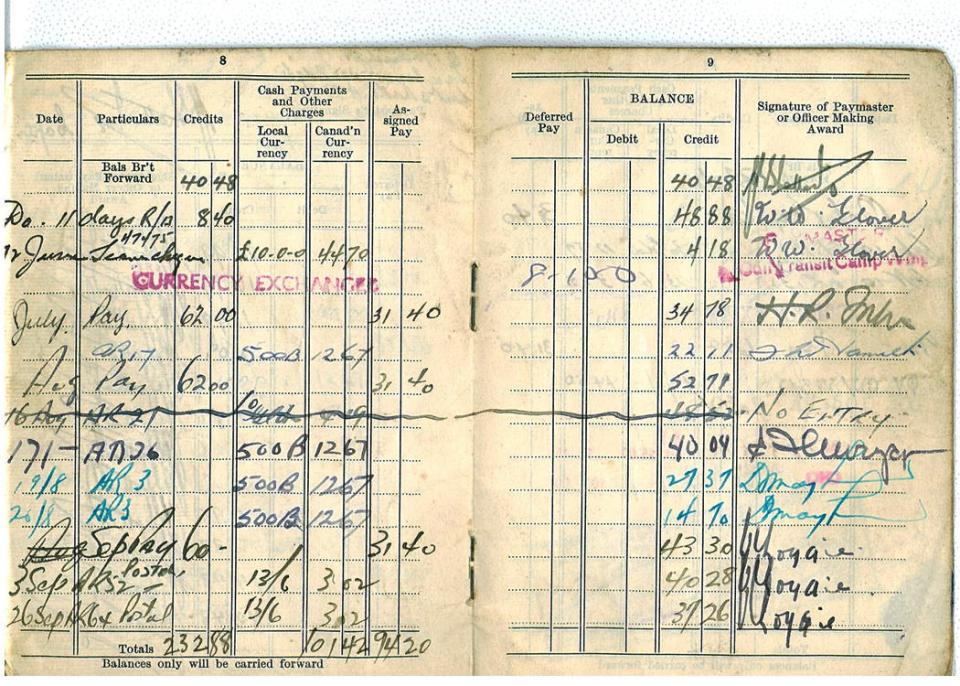 8
Date Particulars Credits Cash Payments and Other Charges Local Currency Canad'n Currency As-signed Pay
Bals Br't Forward 40 48
Do. 11 days R/A 8 40
12 June £10-0-0 44 70
CURRENCY EXCHANGE
July. Pay. 62 00 31 40
AR 17 500B 12 67
Aug Pay 62 00 31 40
16 Aug AR 21
171- AR 26 500B 12 67
19/8 AR 3 500B 12 67
26/8 AR 3 500B 12 67
Aug Sep Pay 60- 31 40
3 Sep AR52 Postal 13/6 3 02
26 Sep AR64 Postal 13/6 3 02
Totals 232 88 101 42 94 20
Balances only will be carried forward
9
Deferred Pay BALANCE Debit Credit Signature of Paymaster or Officer Making Award
40 48
48 88 W.W. Glover
4 18 W.W. Glover
Transit Camp
34 78 H.R.
22 11
52 71
No Entry
40 04
27 37
14 70
43 30
40 28
37 26